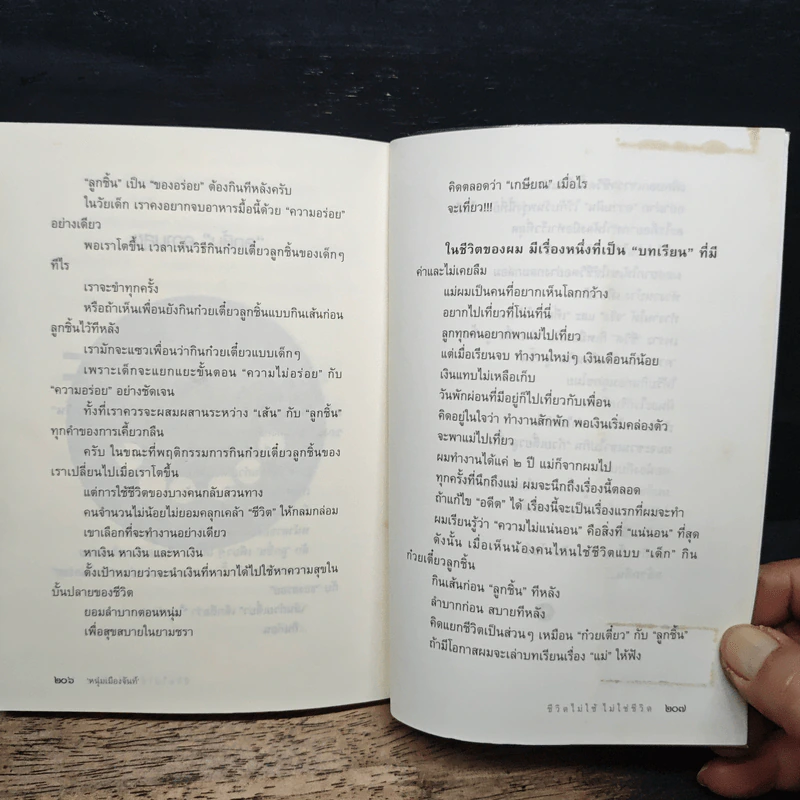 "ลูกชิ้น" เป็น "ของอร่อย" ต้องกินทีหลังครับ
ในวัยเด็ก เราคงอยากจบอาหารมื้อนี้ด้วย "ความอร่อย"
อย่างเดียว
พอเราโตขึ้น เวลาเห็นวิธีกินก๋วยเตี๋ยวลูกชิ้นของเด็กๆ
ทีไร
เราจะขำทุกครั้ง
หรือถ้าเห็นเพื่อนยังกินก๋วยเตี๋ยวลูกชิ้นแบบกินเส้นก่อน
ลูกชิ้นไว้ทีหลัง
เรามักจะแซวเพื่อนว่ากินก๋วยเตี๋ยวแบบเด็กๆ
เพราะเด็กจะแยกแยะขั้นตอน "ความไม่อร่อย" กับ
"ความอร่อย" อย่างชัดเจน
ทั้งที่เราควรจะผสมผสานระหว่าง "เส้น" กับ "ลูกชิ้น"
ทุกคำของการเคี้ยวกลืน
ครับ ในขณะที่พฤติกรรมการกินก๋วยเตี๋ยวลูกชิ้นของ
เราเปลี่ยนไปเมื่อเราโตขึ้น
แต่การใช้ชีวิตของบางคนกลับสวนทาง
คนจำนวนไม่น้อยไม่ยอมคลุกเคล้า "ชีวิต" ให้กลมกล่อม
เขาเลือกที่จะทำงานอย่างเดียว
หาเงิน หาเงิน และหาเงิน
ตั้งเป้าหมายว่าจะนำเงินที่หามาได้ไปใช้หาความสุขใน
บั้นปลายของชีวิต
ยอมลำบากตอนหนุ่ม
เพื่อสุขสบายในยามชรา
๒๐๖ 'หนุ่มเมืองจันท์'
คิดตลอดว่า "เกษียณ" เมื่อไร
จะเที่ยว!!!
ในชีวิตของผม มีเรื่องหนึ่งที่เป็น "บทเรียน" ที่มี
ค่าและไม่เคยลืม
แม่ผมเป็นคนที่อยากเห็นโลกกว้าง
อยากไปเที่ยวที่โน่นที่นี่
ลูกทุกคนอยากพาแม่ไปเที่ยว
แต่เมื่อเรียนจบ ทำงานใหม่ๆ เงินเดือนก็น้อย
เงินแทบไม่เหลือเก็บ
วันพักผ่อนที่มีอยู่ก็ไปเที่ยวกับเพื่อน
คิดอยู่ในใจว่า ทำงานสักพัก พอเงินเริ่มคล่องตัว
จะพาแม่ไปเที่ยว
ผมทำงานได้แค่ ๒ ปี แม่ก็จากผมไป
ทุกครั้งที่นึกถึงแม่ ผมจะนึกถึงเรื่องนี้ตลอด
ถ้าแก้ไข "อดีต" ได้ เรื่องนี้จะเป็นเรื่องแรกที่ผมจะทำ
ผมเรียนรู้ว่า "ความไม่แน่นอน" คือสิ่งที่ "แน่นอน" ที่สุด
ดังนั้น เมื่อเห็นน้องคนไหนใช้ชีวิตแบบ "เด็ก" กิน
ก๋วยเตี๋ยวลูกชิ้น
กินเส้นก่อน "ลูกชิ้น" ทีหลัง
ลำบากก่อน สบายทีหลัง
คิดแยกชีวิตเป็นส่วนๆ เหมือน "ก๋วยเตี๋ยว" กับ "ลูกชิ้น"
ถ้ามีโอกาสผมจะเล่าบทเรียนเรื่อง "แม่" ให้ฟัง
ชีวิตไม่ใช้ ไม่ใช่ชีวิต ๒๐๗